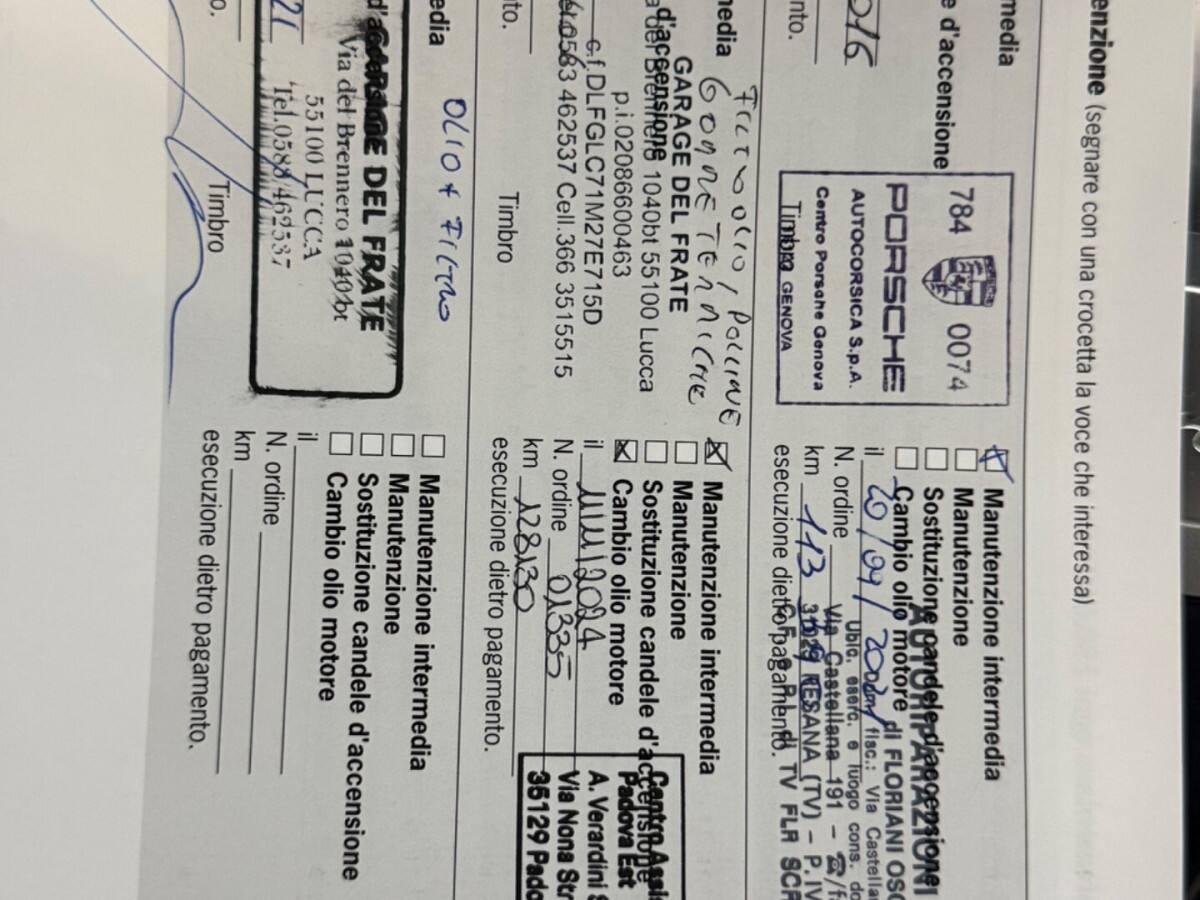 enzione (segnare con una crocetta la voce che interessa)
media
e d'accensione
016
nto.
784 0074
PORSCHE
AUTOCORSICA S.p.A.
Centro Porsche Genova
GENOVA
Timbro
Manutenzione intermedia
Manutenzione
Sostituzione candele d'accensione
Cambio olio motore
il 20/09/
N. ordine
km 113
esecuzione dietro pagamento.
AUTORIPARAZIONI
di FLORIANI OSC
Ubic. eserc. e luogo cons. do
fisc.: Via Castella
Via Castellana 191 –
31023 RESANA (TV) – P. IV
TV FLR SCR
media
d'accensione
nto.
FILTRO OLIO / POLLINE
GOMME TERMICHE
GARAGE DEL FRATE
del Brennero 1040bt 55100 Lucca
p.i.02086600463
c.f.DLFGLC71M27E715D
0583 462537 Cell.366 3515515
Timbro
Manutenzione intermedia
Manutenzione
Sostituzione candele d'accensione
Cambio olio motore
il
N. ordine 01335
km 128130
esecuzione dietro pagamento.
Centro Assi
Padova Est
A. Verardini S
Via Nona Str
35129 Pado
edia
OLIO + FILTRO
GARAGE DEL FRATE
Via del Brennero 1040/bt
55100 LUCCA
Tel.0583/462537
Timbro
o.
Manutenzione intermedia
Manutenzione
Sostituzione candele d'accensione
Cambio olio motore
il
N. ordine
km
esecuzione dietro pagamento.